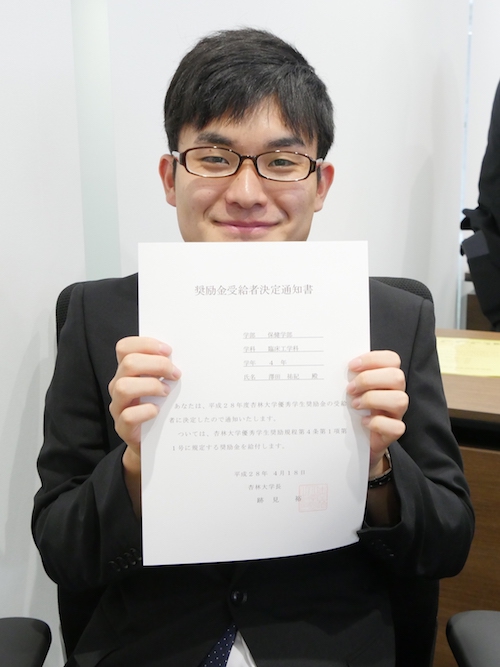 奨励金受給者決定通知書
学部 保健学部
学科 臨床工学科
学年 4 年
氏名 祐紀 殿
あなたは、平成28年度杏林大学優秀学生奨励金の受給
者に決定したので通知いたします。
ついては、杏林大学優秀学生奨励規程第4条第1項第
1号に規定する奨励金を給付します。
平成28年 4月18日
杏林大学長
跡 見 裕